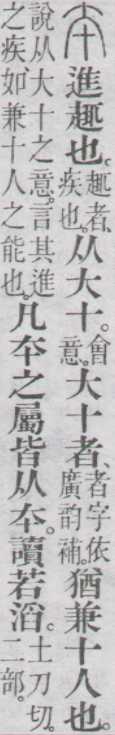 夲進趣也。趣者、疾也。从大十。會意。大十者、者字依廣韵補。猶兼十人也。
說从大十之意。言其進之疾如兼十人之能也。凡夲之屬皆从夲。讀若滔。土刀切。二部。